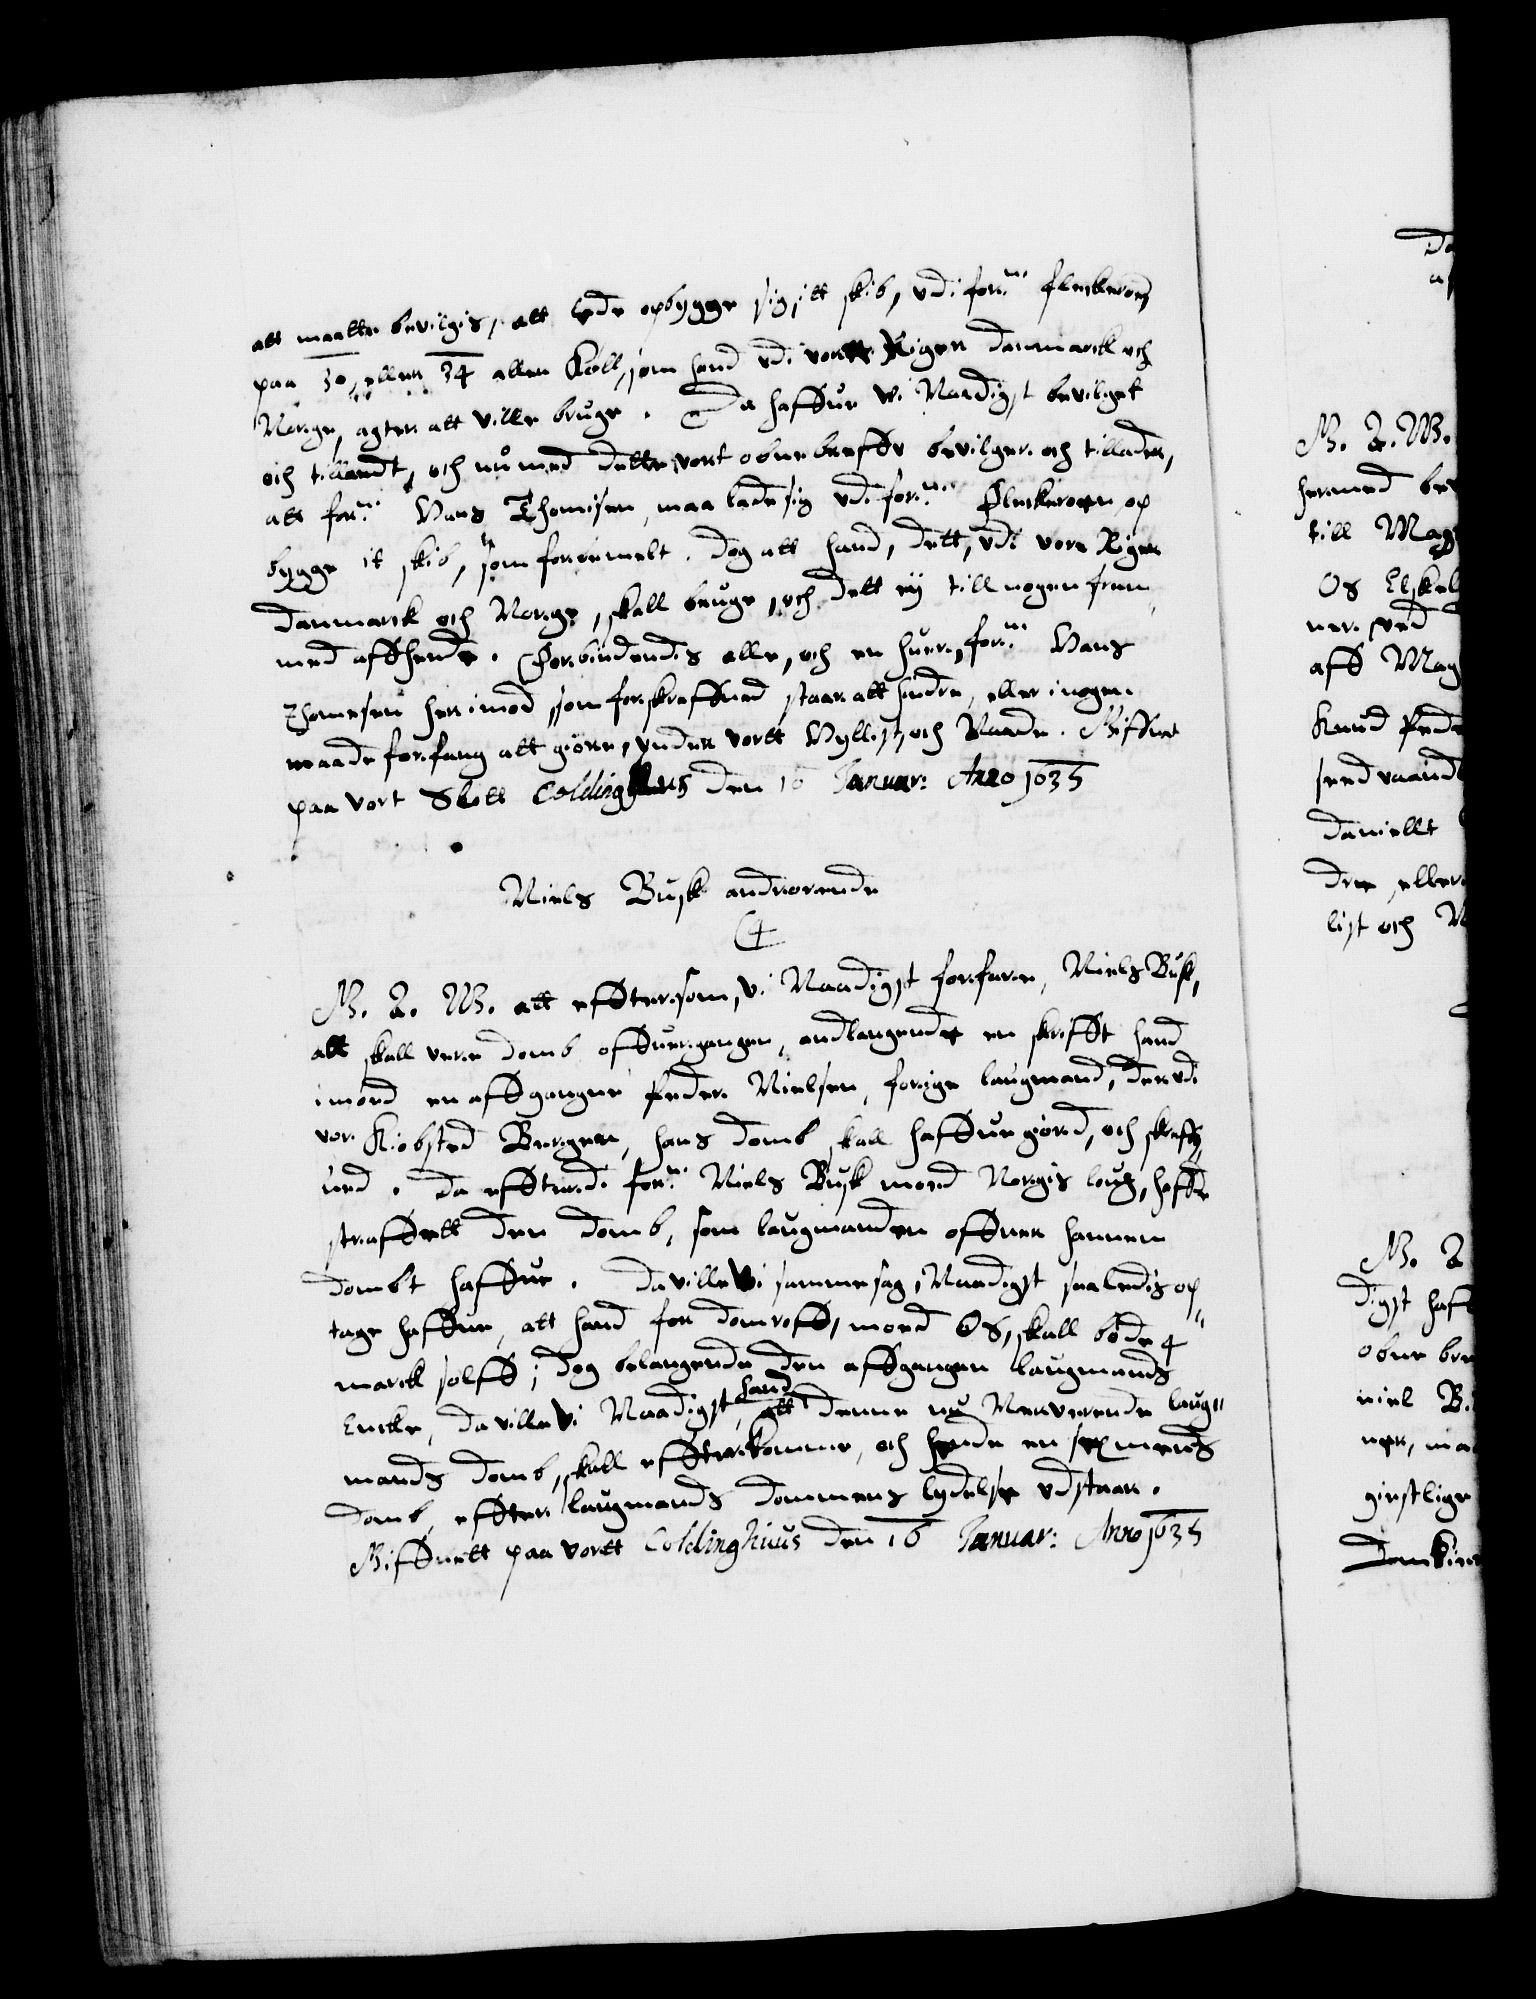 att maatte bevilgis, att lade opbygge sig, itt skib, vdi for.ne Fleskeroen,
paa 30, eller 34 allen Köll, som hand vdi vore Riger Danmarck och
Norge, agter att ville bruge. Da haffue wi Naadigst bevilget
och tilladt, och nu med dette vort obne breffv bevilger och tillader,
att for.ne Hans Thomisen, maa lade sig vdi for.ne Fleskeroen, op
bygge it skib, som forbemelt. Dog att hand, dett, vdi vore Riger
Danmarck och Norge, skall bruge, och dett ey till nogen frem
med affhende. Forbiudendis alle, och en huer, for.ne Hans
Thomesen her imod, som forskreffued staar att hindre, eller i nogen
maade forfang att giøre, ynder vortt Hyllist, och Naade. Giffuet
paa vort Slott Coldinghuus den 16 Januar: Anno 1635
Niels Busk andrørende
G. A. W. att effttersom, vi Naadigst forfare, Niels Busk,
att skall vere domb offuergangen, andlangende en skrifft hand
imod en affgangne Peder Nielsen, forige laugmand, der vdi
vor Kiøbsted Bergen, hans domb skall haffue giord, och skreff
ued. Da effterdi for.ne Niels Busk moed Norgis loug, haffr
straffett den domb, som laugmanden offuer hannem
dombt haffue. Da ville Vi samme sag, Naadigst saaledis op"
tage haffue, att hand for domroff, moed Os, skall böde 4
marck sølff; dog belangende den affgangen laugmands
Encke, da ville Vi Naadigst, att hand denne nu Nerverende laug"
mands domb, skall effterkomme, och hende en sex mends
domb, effter laugmands dommens lydelse vdstaar.
Giffuett paa vortt Coldinghuus den 16 Januar: Anno 1635